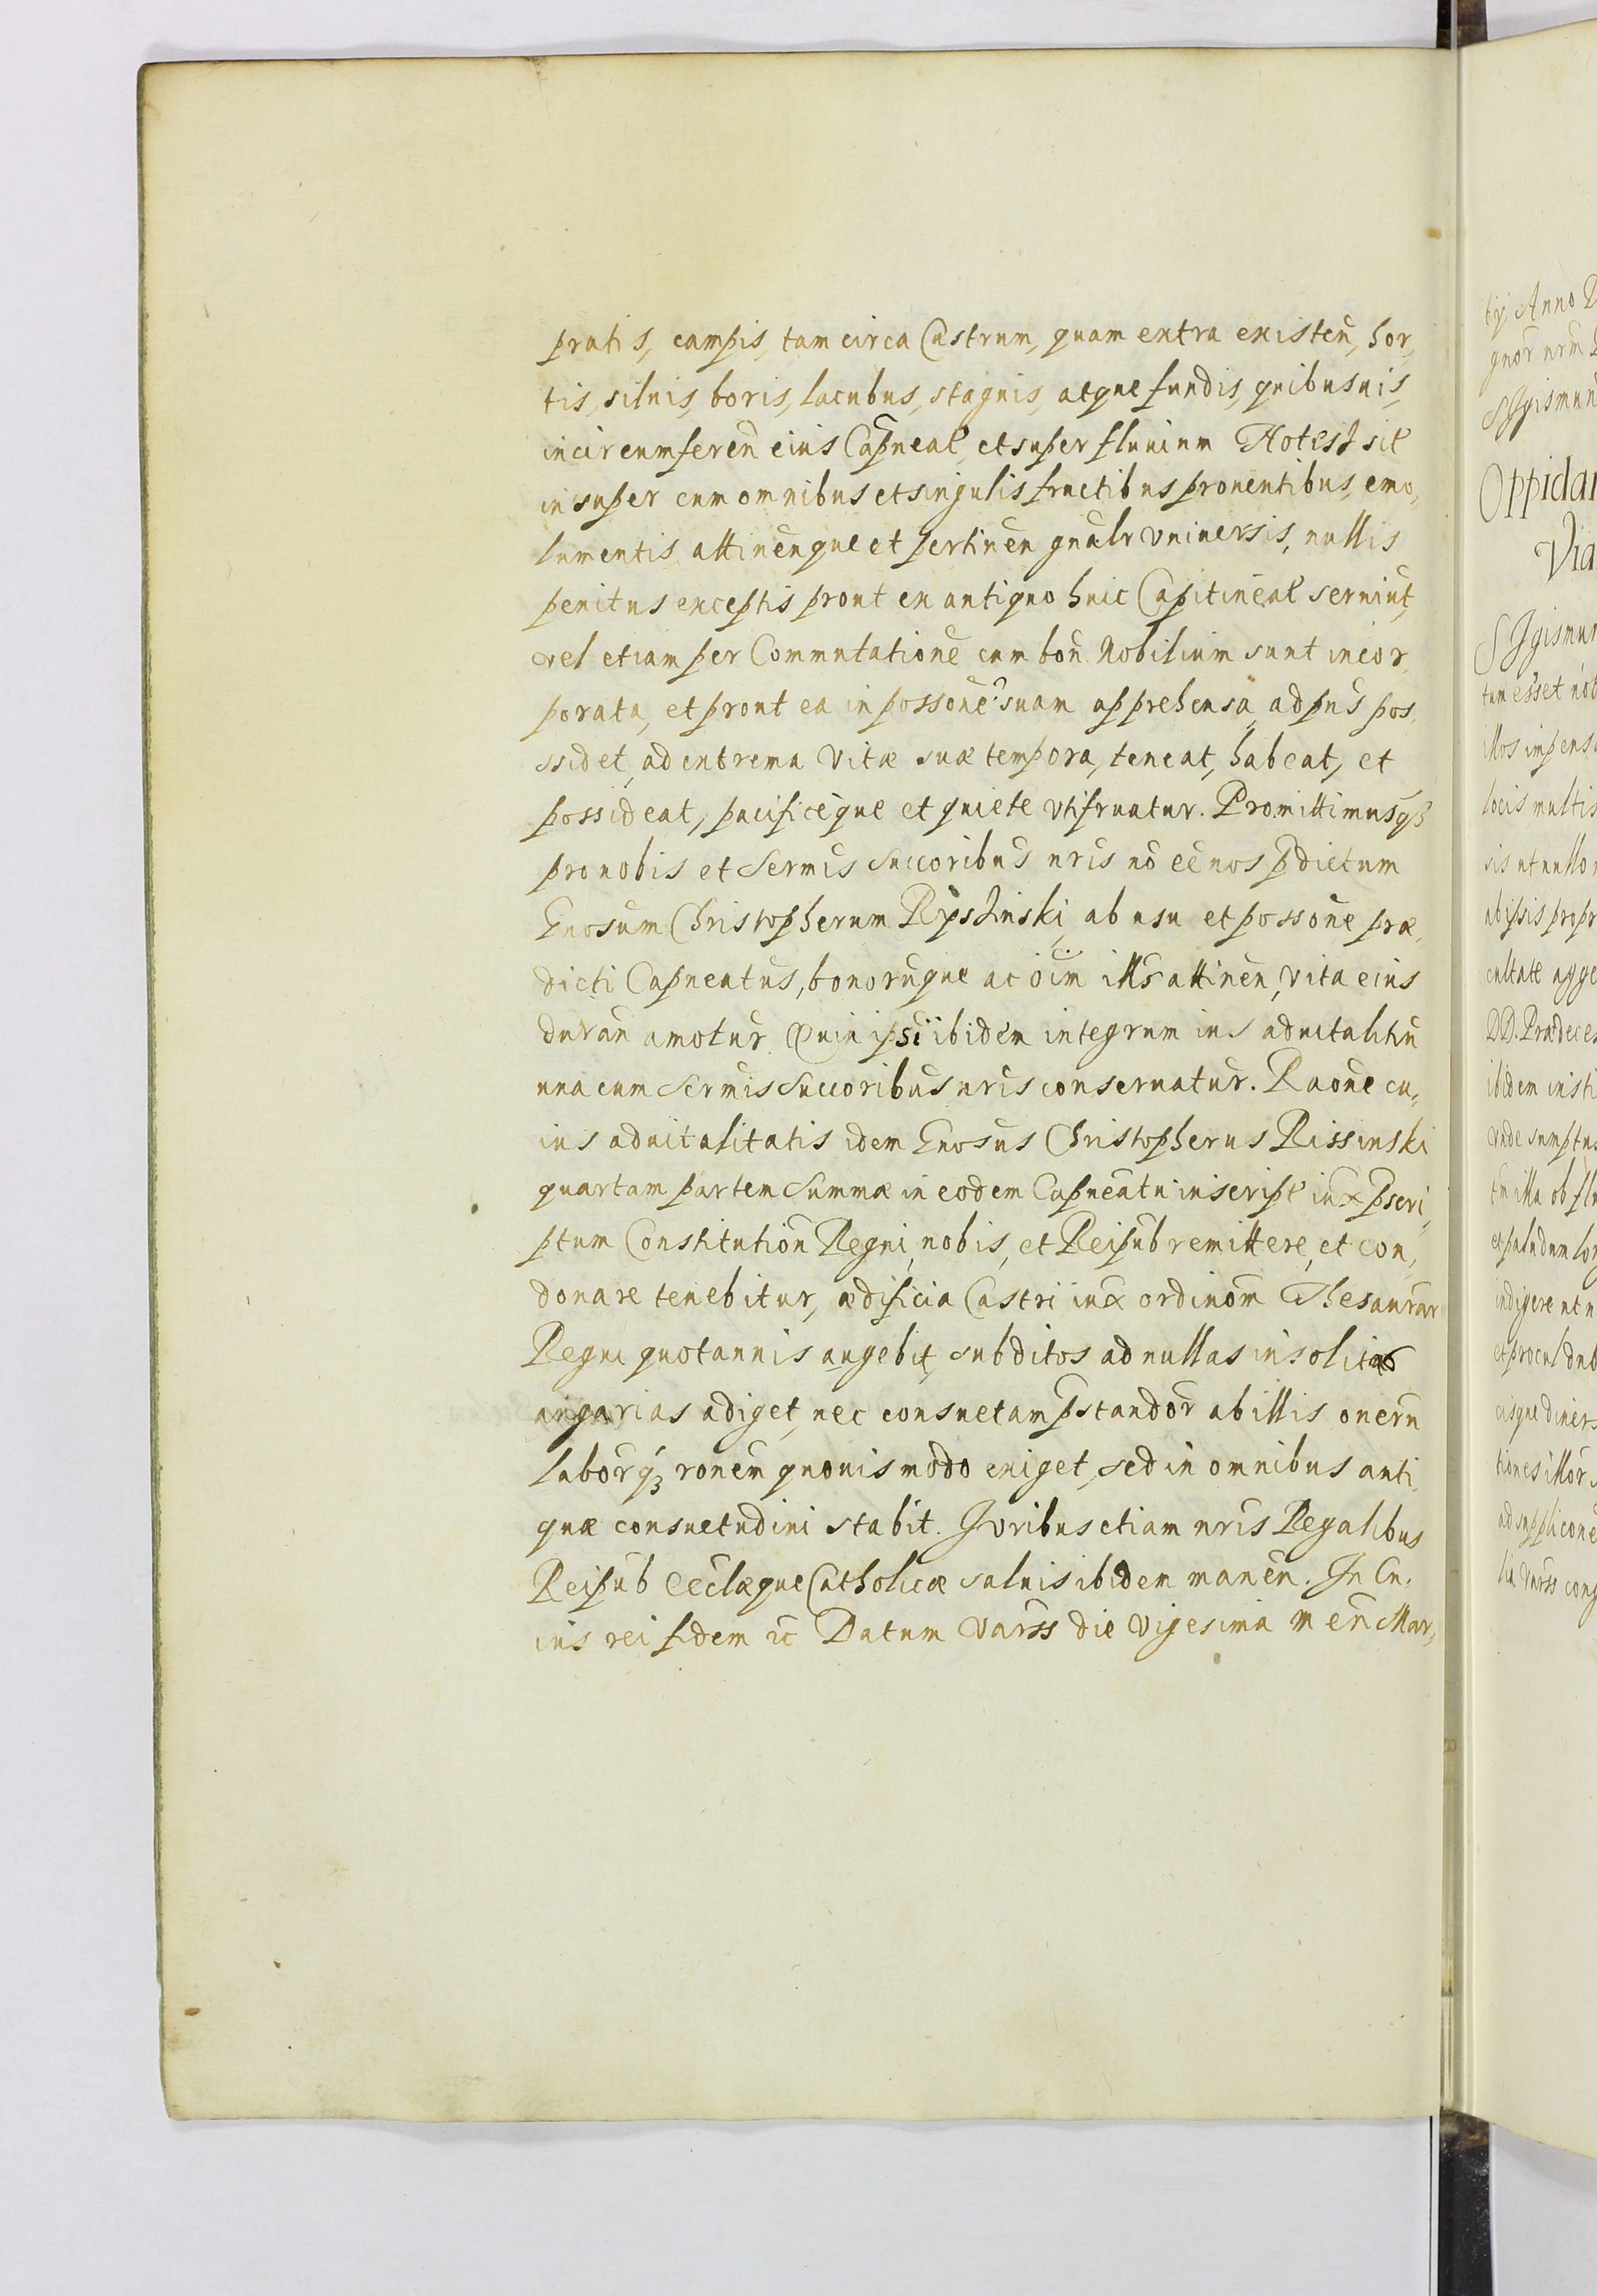 pratis, campis, tam circa Castrum, quam extra existeñ, hor,
tis, siluis, boris, lacubus, stagnis, atque fundis, quibusuis,
in circumfereñ eius Capneał, et super fluuium Hotest sił
insuper cum omnibus et singulis fructibus prouentibus, emo,
lumentis attineñque et pertineñ gnãlr vniuersis, nullis
penitus exceptis prout ex antiquo huic Capitineał seruiut,
vel etiam per Commutationẽ cum boñ Nobilium sunt incor,
porata, et prout ea in possoñe suam apprehensa, ad pñs pos,
ssidet, ad extrema vitæ suæ tempora, teneat, habeat, et
possideat, pacificèque et quiete vtifruatur. Promittimusqȝ
pro nobis et Sermis Succoribus nris nõ ẽẽ nos p̃dictum
Gnosum Christopherum Rÿsɀinski, ab usu et possoñe præ,
dicti Capneatus, bonorũque ac oĩm illius attineñ, vita eius
duran̄ amotur. Quin ipsi ibidem integrum ius aduitalitiũ
una cum Sermis Succoribus nris conseruatur. Raõne cu,
ius aduitalitatis idem Gnosus Christopherus Rissinski
quartam partem Summæ in eodem Capneatu inscript iuxͣ p̃scri,
ptum Constitutioñ Regni, nobis, et Reipub remittere, et con,
donare tenebitur, ædificia Castri iuxͣ ordinõm Thesaurar
Regni quotannis augebit, subditos ad nullas insolitas
angarias adiget, nec consuetam p̃standor̃ ab illis onerũ
labor̃qȝ ronem quouis modo exiget, sed in omnibus anti,
quæ consuetudini stabit. Iuribus etiam nris Regalibus
Reipub Eeclæque Catholicæ saluis ibidem maneñ. In Cu,
ius rei fidem ꝛc Datum Varss die vigesima Meñ Mar,
tij Anno D
gnor̃ nrm̃
SIgismun
Oppidan
Via
SIgismun
tum esset not
illos impens
locis multis
sis ut nullo
ab ipsis propr
cultate agge
DD. Prædeces
ibidem insti
vnde sumptus
et paludum lon
indigere ut n
et procul dub
eisque diuers
tiones illor̃
ad supplicone
Varss cong